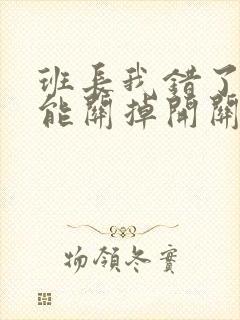 班長我錯了
能關掉開關
物領冬實